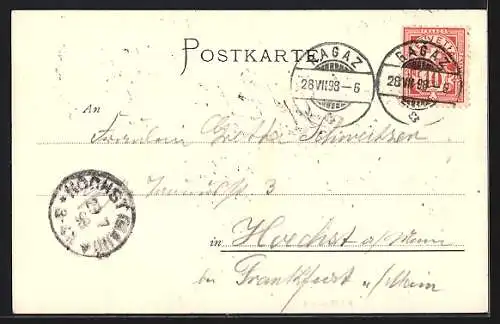 POSTKARTE
RAGAZ
28.VII.98–6
RAGAZ
28.VII.98–6
FRANCO
10
An
Fräulein Schweitzer
3
HÖCHST (MAIN)
29 7 98
in Hoechst a/Main
bei Frankfurt a/Main